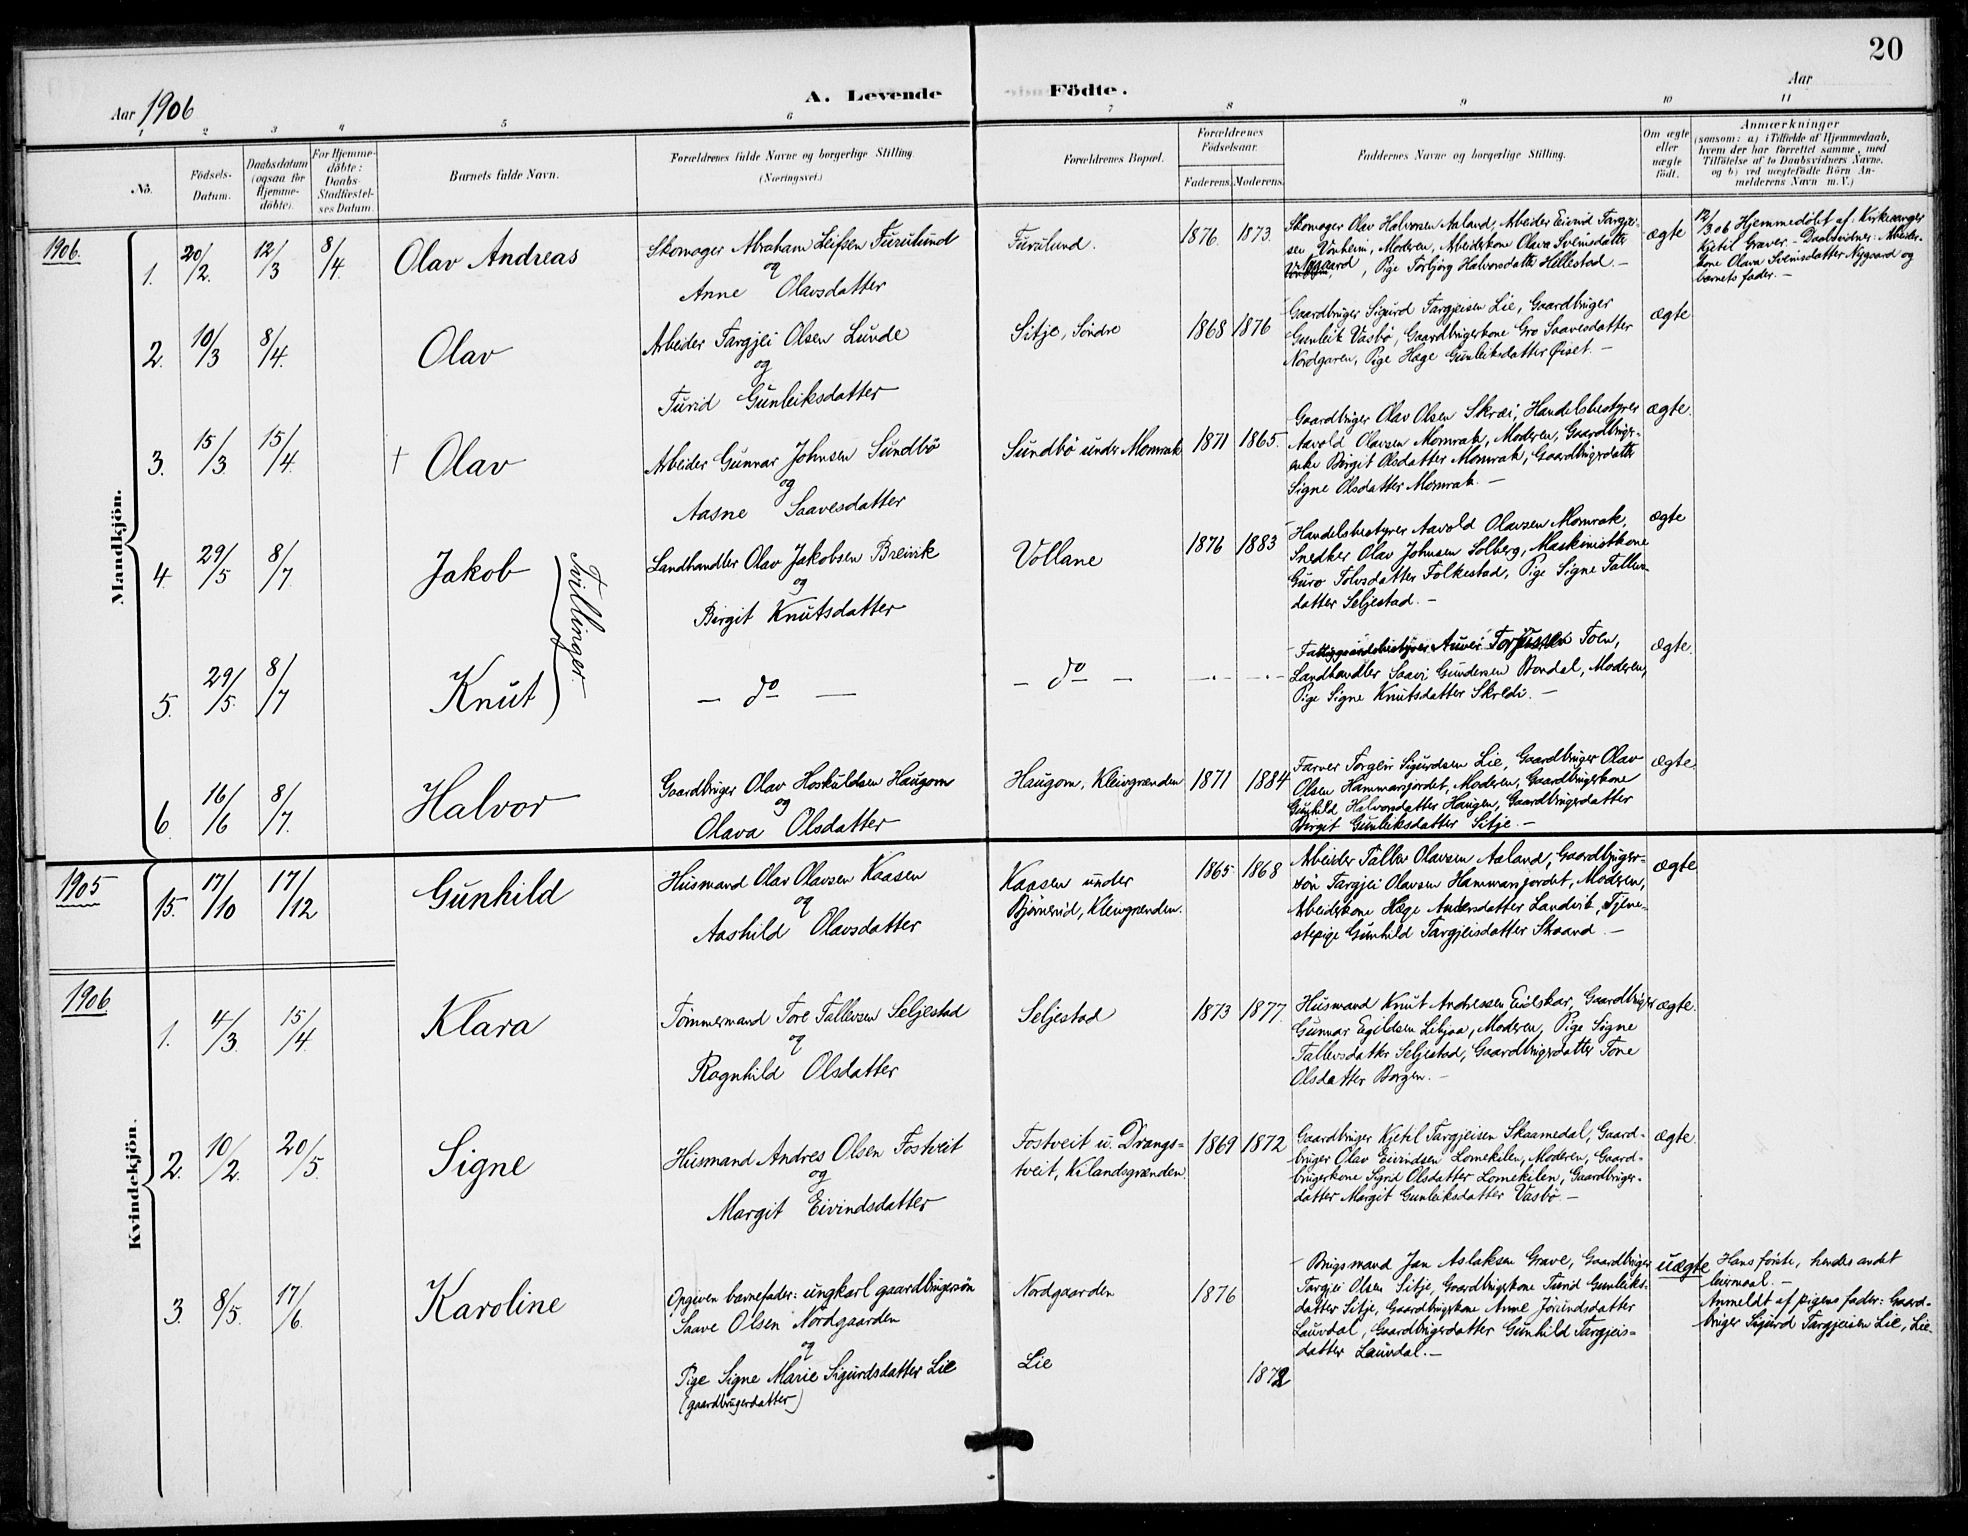 20
A. Levende Födte.
Aar 1906
Aar
1 2 3 4 5 6 7 8 9 10 11
No.
Födsels-Datum.
Daabsdatum (ogsaa for Hjemme-döbte).
For Hjemme-döbte: Daabs-Stadfæstel-ses Datum.
Barnets fulde Navn.
Forældrenes fulde Navne og borgerlige Stilling.
(Næringsvei.)
Forældrenes Bopæl.
Forældrenes Födselsaar.
Faderens. Moderens.
Faddernes Navne og borgerlige Stilling.
Om ægte eller uægte födt.
Anmærkninger
(saasom: a) i Tilfælde af Hjemmedaab,
hvem der har forrettet samme, med
Tilföielse af to Daabsvidners Navne,
og b) ved uægtefödte Börn An-
melderens Navn m. V.)
Mandkjön.
1906.
1. 20/2. 12/3 8/4
Olav Andreas
Skomager Abraham Leifsen Furulund
og
Anne Olavsdatter
Furulund.
1876. 1873.
Skomager Olav Halvorsen Aaland, Arbeider Eivind Targje-
sen Vinheim, Moderen, Arbeiderkone Olava Sveinsdatter
Nygaard, Pige Torbjörg Halvorsdatter Hellestad. —
ægte
12/3 06 Hjemmedöbt af Kirkesanger
Kjetil Graver. — Daabsvidner: Arbeider-
kone Olava Sveinsdatter Nygaard og
barnets fader. —
2. 10/3 8/4.
Olav
Arbeider Targjei Olsen Lunde
og
Turid Gunleiksdatter
Sitje, Söndre
1868 1876
Gaardbruger Sigurd Targjeisen Lie, Gaardbruger
Gunleik Vasbø, Gaardbrugerkone Gro Saavesdatter
Nordgaren, Pige Hæge Gunleiksdatter Øiset. —
ægte
3. 15/3 15/4.
† Olav
Arbeider Gunnar Johnsen Sundbö
og
Aasne Saavesdatter
Sundbö under Momrak
1871 1865.
Gaardbruger Olav Olsen Skræi, Handelsbestyrer
Aavold Olavsen Momrak, Moderen, Gaardbruger-
enke Birgit Olsdatter Momrak, Gaardbrugerdatter
Signe Olsdatter Momrak. —
ægte.
4. 29/5 8/7.
Jakob
Tvillinger.
Landhandler Olav Jakobsen Breivik
og
Birgit Knutsdatter
Vollane
1876 1883
Handelsbestyrer Aavold Olavsen Momrak,
Snedker Olav Johnsen Solberg, Maskinistkone
Guro Tolvsdatter Folkestad, Pige Signe Tallevs-
datter Seljestad. —
ægte
5. 29/5. 8/7
Knut
— do —
— do —
Fattiggaardsbestyrer Toen,
Landhandler Saavi Gundersen Bondal, Moderen,
Pige Signe Knutsdatter Skredi. —
ægte.
6. 16/6 8/7.
Halvor
Gaardbruger Olav Hoskuldsen Haugom
og
Olava Olsdatter
Haugom, Kleivgrænden
1871 1884
Farver Torgeir Sigurdsen Lie, Gaardbruger Olav
Olsen Hammarsjordet, Moderen, Gaardbrugerkone
Gunhild Halvorsdatter Haugen, Gaardbrugerdatter
Birgit Gunleiksdatter Sitje. —
ægte.
Kvindekjön.
1905
15. 17/10 17/12
Gunhild
Husmand Olav Olavsen Kaasen
og
Aashild Olavsdatter
Kaasen under
Bjørnerid, Kleivgrænden.
1865. 1868
Arbeider Tallev Olavsen Aaland, Gaardbruger-
sön Targjei Olavsen Hammarsjordet, Moderen,
Arbeiderkone Hæge Andersdatter Landvik, Tjene-
stepige Gunhild Targjeisdatter Skaard. —
ægte
1906.
1. 4/3. 15/4.
Klara
Tömmermand Tore Tallevsen Seljestad
og
Rognhild Olsdatter
Seljestad
1873 1877.
Husmand Knut Andressen Eidskar, Gaardbruger
Gunnar Egildsen Libjaa, Moderen, Pige Signe
Tallevsdatter Seljestad, Gaardbrugerdatter Tone
Olsdatter Borgen. —
ægte.
2. 10/2. 20/5.
Signe
Husmand Andres Olsen Fostveit
og
Margit Eivindsdatter
Fostveit u. Drangs-
tveit, Kilandsgrænden
1869 1872
Gaardbruger Kjetil Targjeisen Skaamedal, Gaard-
bruger Olav Eivindsen Lomekilen, Moderen, Gaard-
brugerkone Sigrid Olsdatter Lomekilen, Gaardbruger-
datter Margit Gunleiksdatter Vasbö. —
ægte.
3. 8/5. 17/6.
Karoline
Opgiven barnefader: ungkarl gaardbrugersön
Saave Olsen Nordgaarden
og
Pige Signe Marie Sigurdsdatter Lie
(gaardbrugerdatter)
Nordgaarden
Lie
1876
1872
Brugsmand Jan Aslaksen Grave, Gaardbruger
Targjei Olsen Sitje, Gaardbrugerkone Turid Gunleiks-
datter Sitje, Gaardbrugerkone Anne Jörundsdatter
Lauvdal, Gaardbrugerdatter Gunhild Targjeis-
datter Lauvdal. —
uægte
Hans förste, hendes andet
leiermaal. —
Anmeldt af pigens fader: Gaard-
bruger Sigurd Targjeisen Lie, Lie.